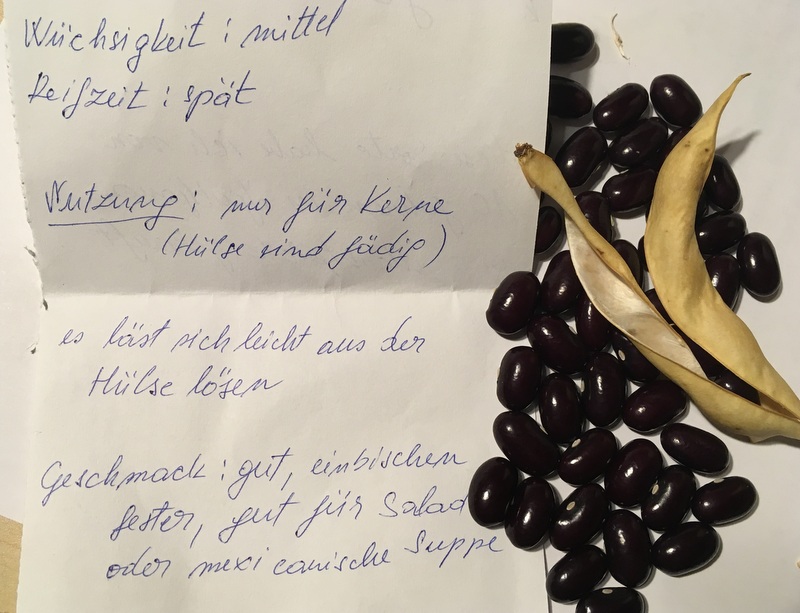 Wüchsigkeit : mittel
Reifzeit : spät
Nutzung : nur für Kerne
(Hülse sind fädig)
es läst sich leicht aus der
Hülse lösen
Geschmack : gut, einbischen
fester, gut für Salad
oder mexicanische Suppe